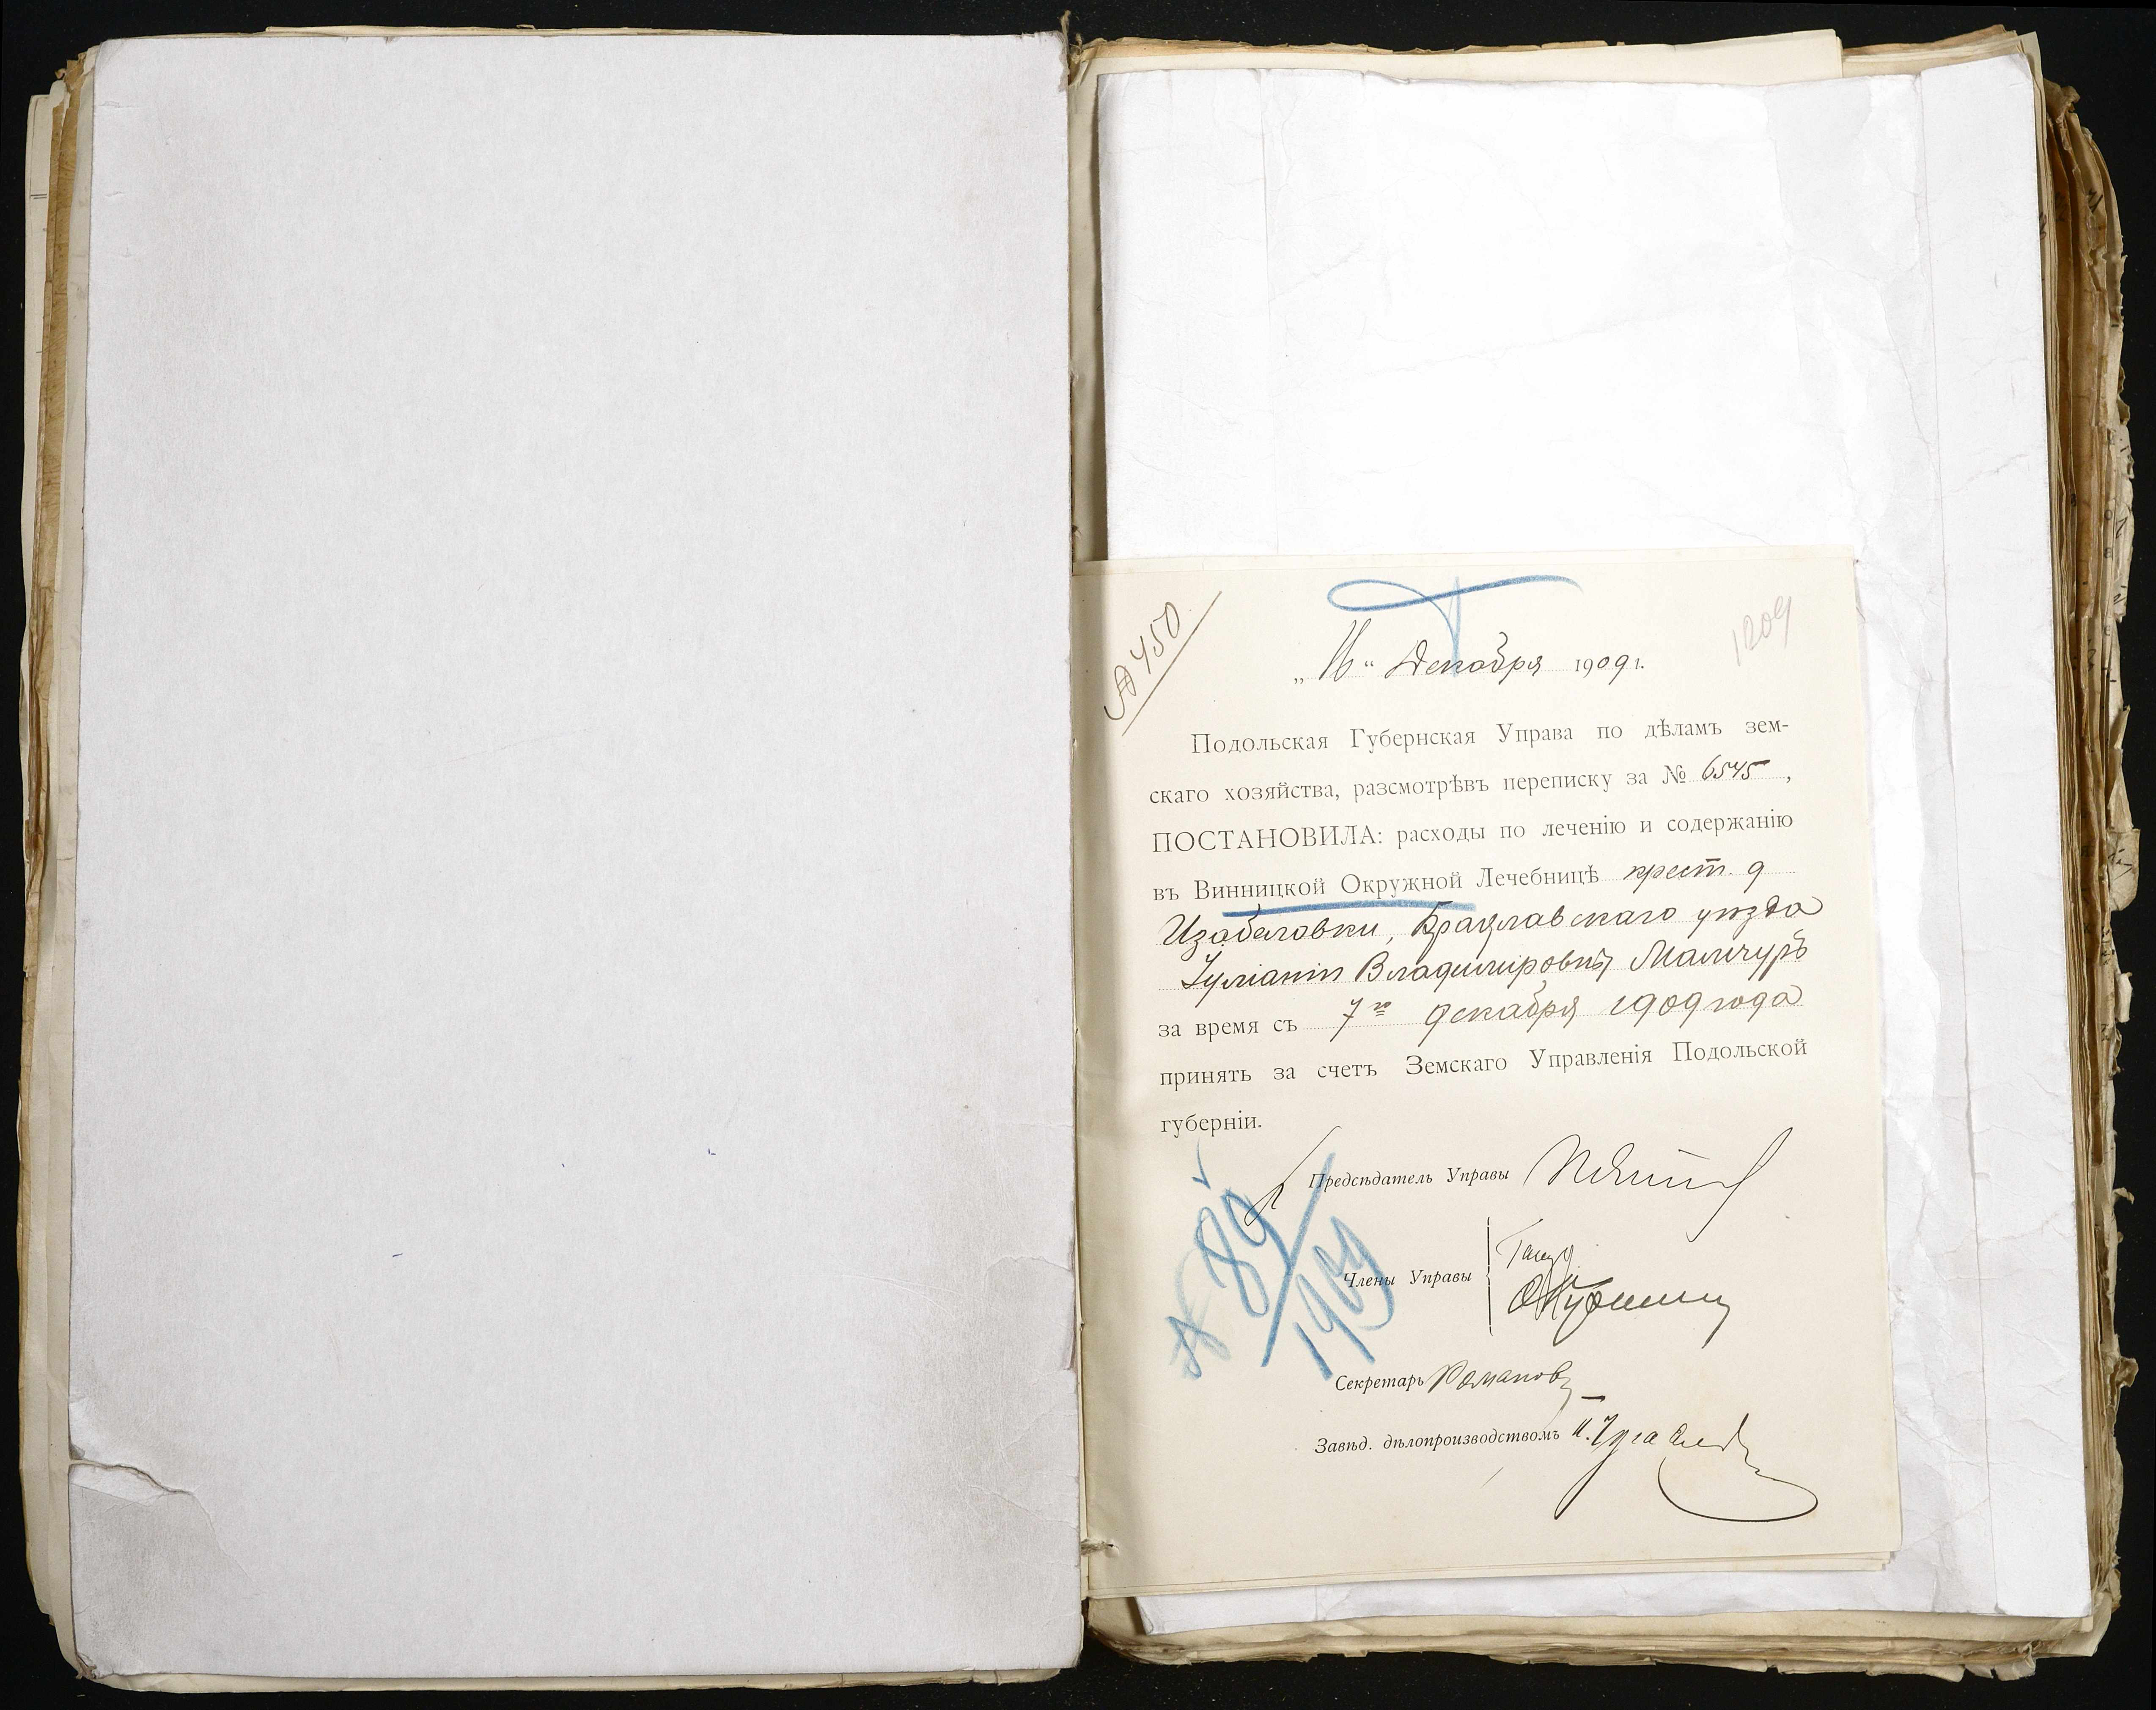 № 450
1209
„16“ Декабря 1909 г.
Подольская Губернская Управа по дѣламъ зем-
скаго хозяйства, разсмотрѣвъ переписку за № 6545,
ПОСТАНОВИЛА: расходы по леченію и содержанію
въ Винницкой Окружной Лечебницѣ крест. д
Изабеловки, Брацлавскаго уѣзда
Іуліаніи Владиміровны Мамчуръ
за время съ 7го декабря 1909 года
принять за счетъ Земскаго Управленія Подольской
губерніи.
Предсѣдатель Управы
Члены Управы
Секретарь Романовъ
Завѣд. дѣлопроизводствомъ
№ 89/1909